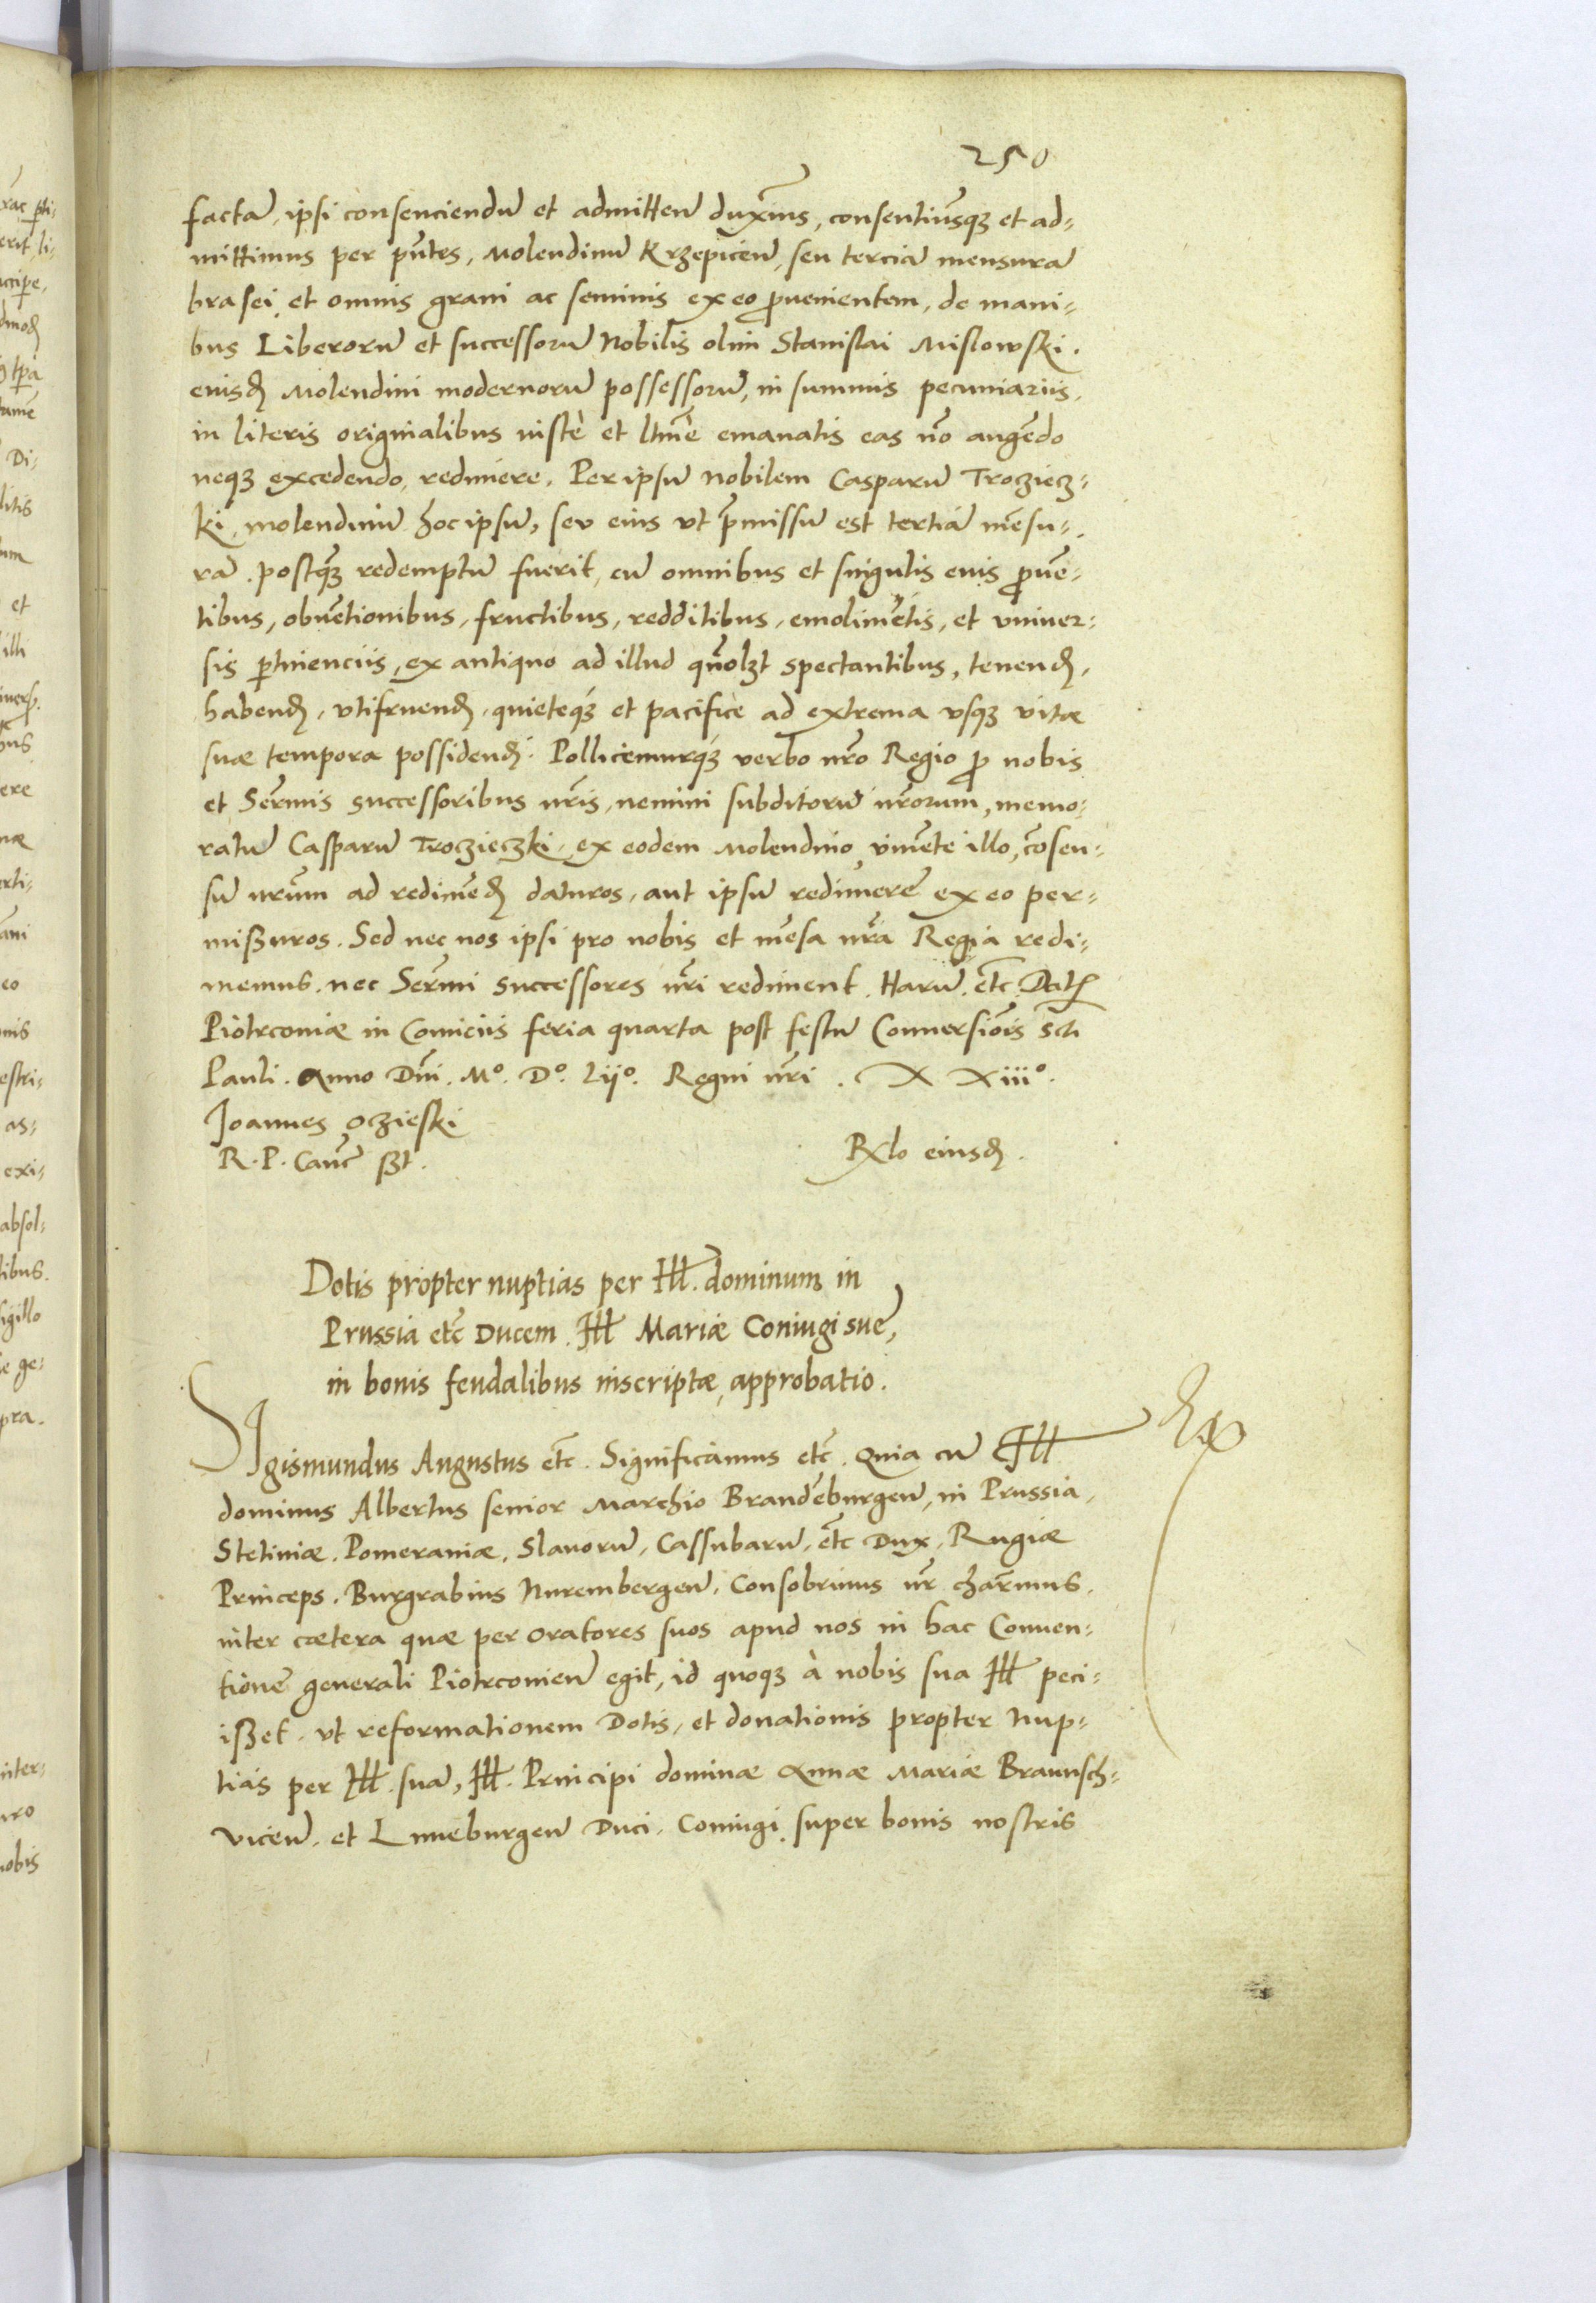 250
factā, ipsi consenciendū et admitten̄ duxim̄us, consentimusq; et ad-
mittimus per pn̄tes, Molendinū Krzepicen̄, seu terciā mensurā
brasei, et omnis grani ac seminis ex eo ꝓuenientem, de mani-
bus Liberorū et successorū Nobilis olim Stanislai Mislowski.
eiusd̄ Molendini modernorū possessorū, in summis pecuniariis,
in literis originalibus iustè et ltīmè emanatis eas nō augēdo
neq; excedendo, redimere. Per ipsū nobilem Casparū Trocziecz-
ki, molendinū hoc ipsū, seu eius vt p̄missū est tertiā mēsu-
rā. postq̄; redemptū fuerit, cū omnibus et singulis euis ꝓuē-
tibus, obuētionibus, fructibus, redditibus, emolimētis, et vniuer-
sis ꝑtinenciis, ex antiquo ad illud qūolzt spectantibus, tenend̄,
habend̄, vtifruend̄, quieteq; et pacificè ad extrema vsq; vitæ
suæ tempora possidend̄. Pollicemurq; verbo nr̄o Regio ꝓ nobis
et Serm̄is successoribus nr̄is, nemini subditorū nr̄orum, memo-
ratū Casparū Trocziecki, ex eodem Molendino viuēte illo, cōsen-
sū nr̄um ad redimēd̄ daturos, aut ipsū redimere ex eo per-
mißuros. Sed nec nos ipsi pro nobis et mēsa nr̄a Regia redi-
memus. nec Serm̄i successores nr̄i rediment. Harū etc̄ Dat̄
Piotrconiæ in Comiciis feria quarta post festū Conuersiōis Sc̄ti
Pauli. Anno Dn̄i. Mº. Dº. Lijº. Regni nr̄i. X Xiiiº.
Joannes Oczieski
R. P. Canc̄ ßt.
Rl̄o eiusd̄.
Dotis propter nuptias per Ill. dominum in
Prussia etc̄ Ducem. Ill Mariæ Coniugi suę,
in bonis feudalibus inscriptæ, approbatio.
Sigismundus Augustus etc̄. Significamus etc̄. Quia cū Ill
dominus Albertus senior Marchio Brandēburgen̄, in Prussia,
Stetiniæ, Pomeraniæ, Slauorū, Cassubarū, etc̄ Dux, Rugiæ
Princeps. Burgrabius Nurembergen̄, Consobrinus nr̄ char̄mus.
inter cætera quæ per oratores suos apud nos in hac Conuen-
tione generali Piotrconien̄ egit, id quoq; à nobis sua Ill peci-
ißet. vt reformationem Dotis, et donationis propter Nup-
tias per Ill. suā, Ill. Principi dominæ Annæ Mariæ Braunsch-
vicen̄. et Luneburgen̄ Duci. Coniugi super bonis nostris